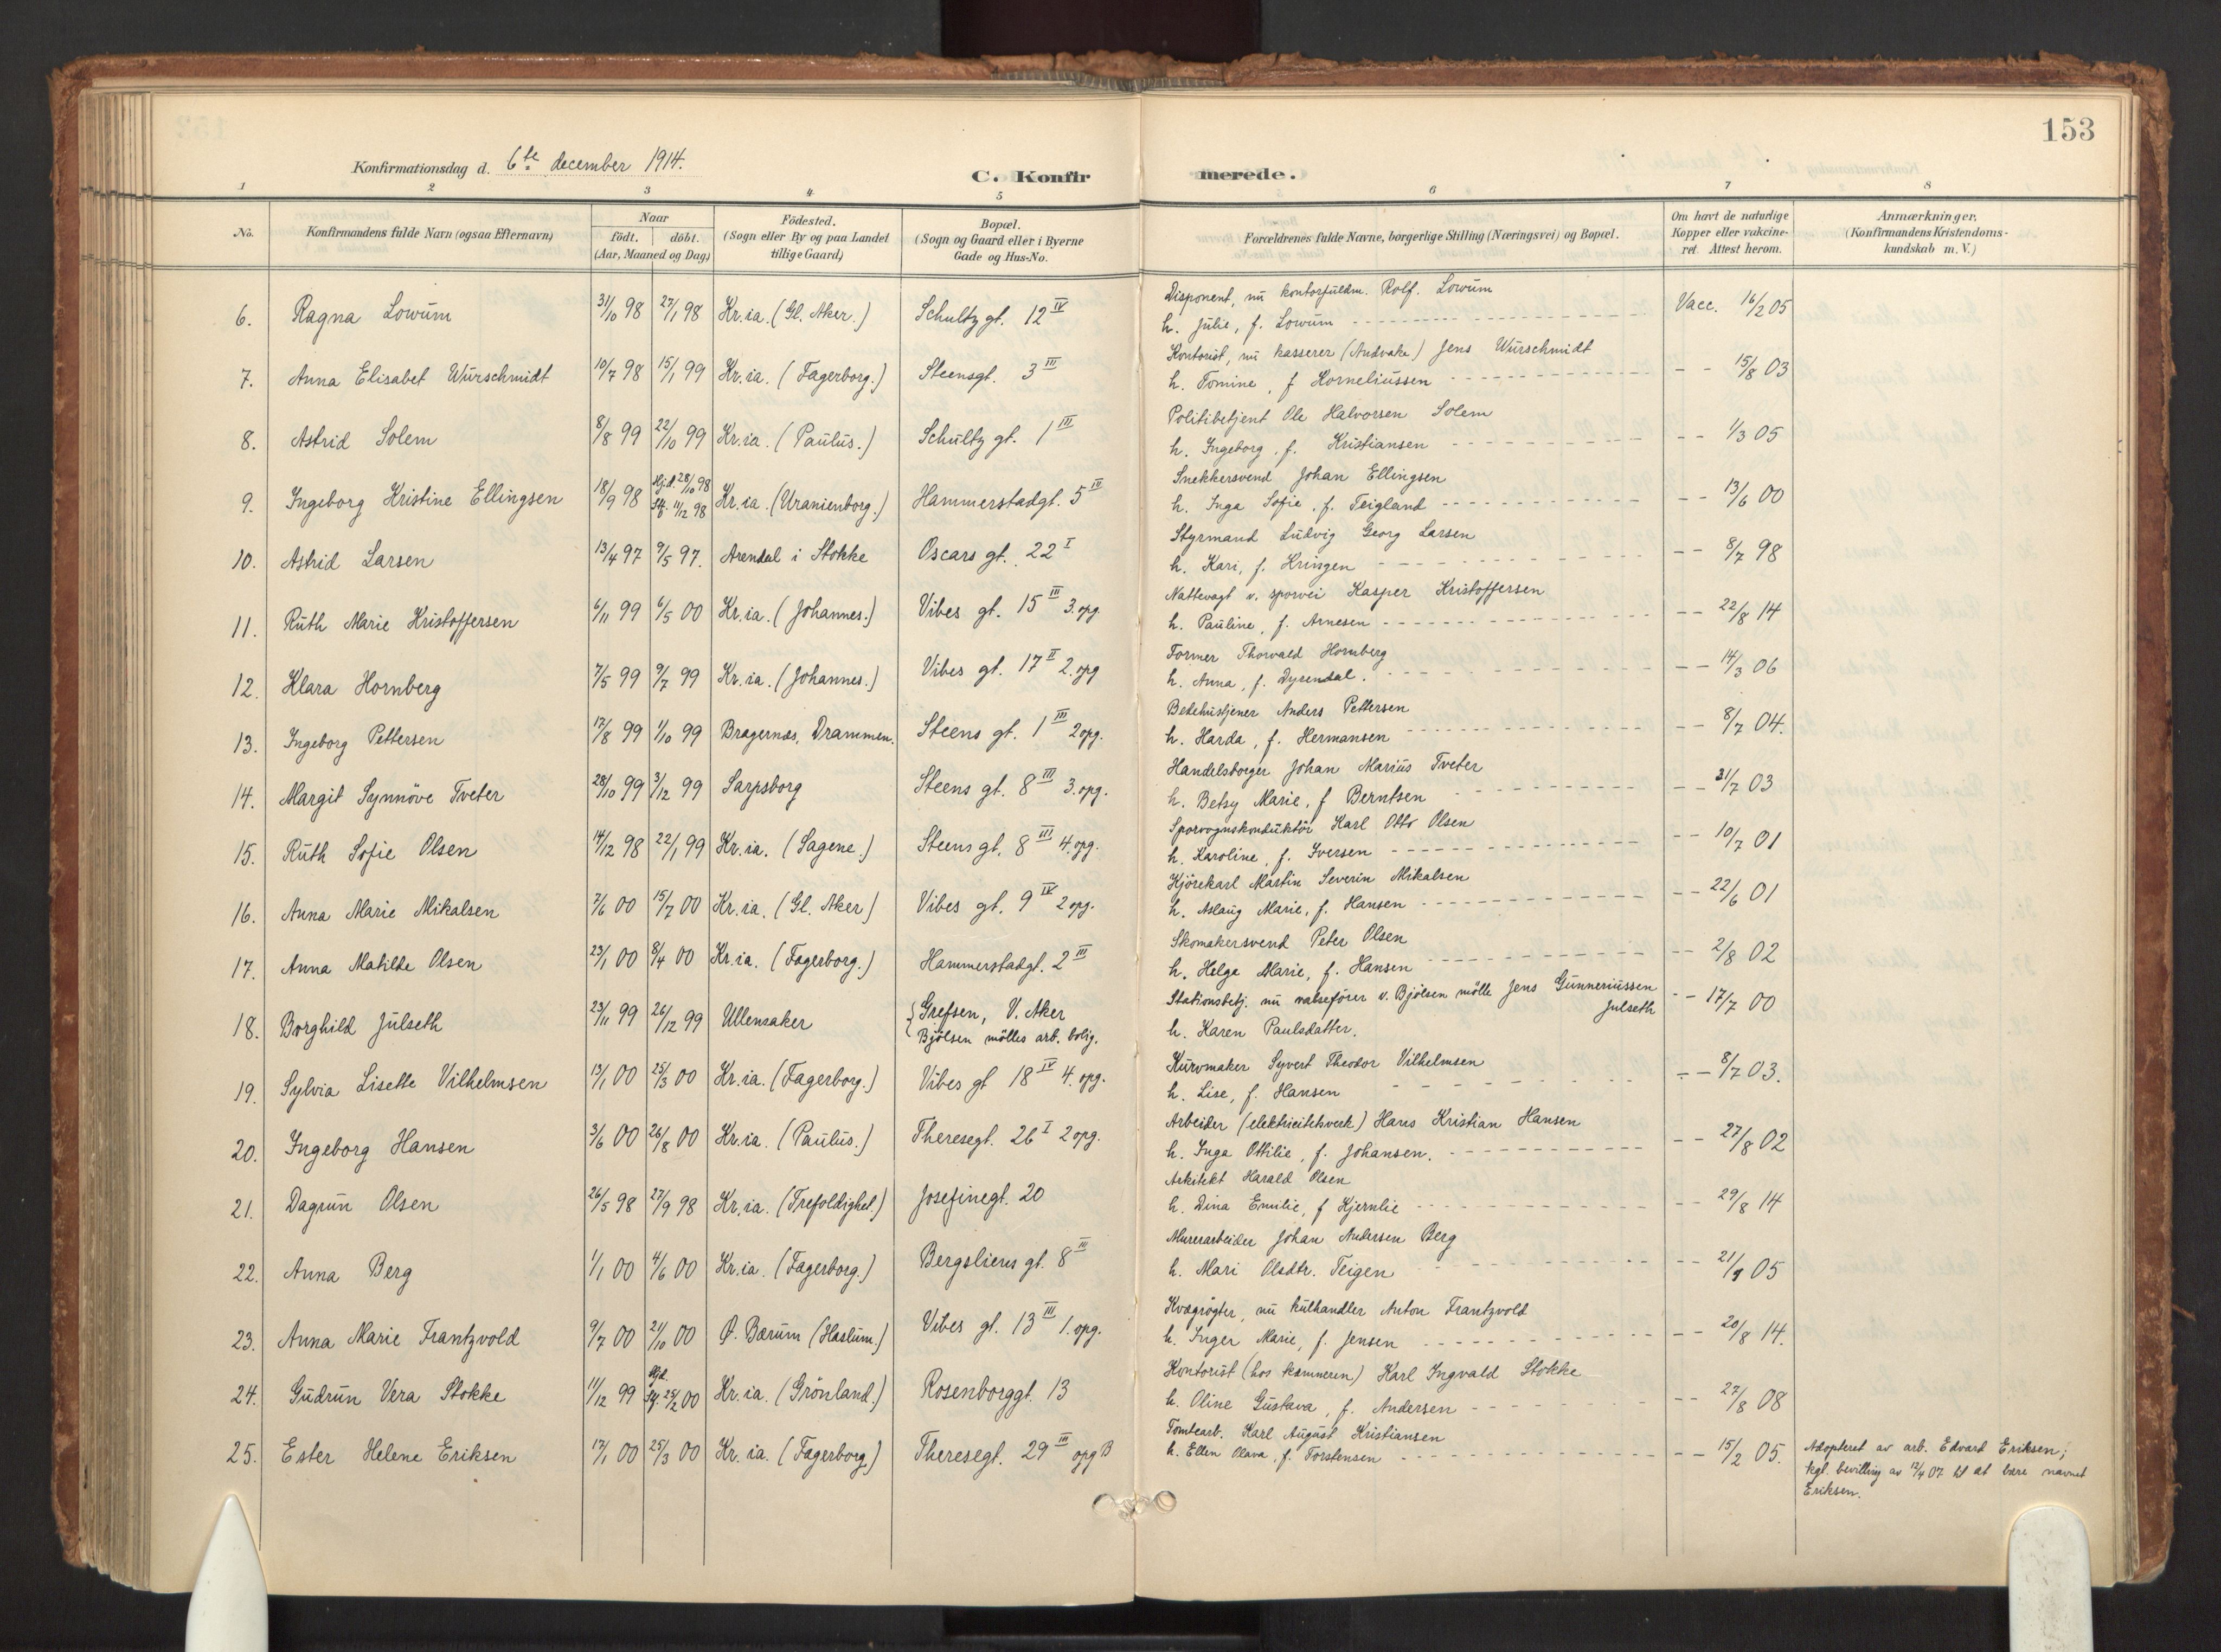 153
Konfirmationsdag d. 6te december 1914.
C. Konfirmerede.
1 2 3 4 5 6 7 8
No.
Konfirmandens fulde Navn (ogsaa Efternavn)
Naar
födt. döbt.
(Aar, Maaned og Dag)
Födested.
(Sogn eller By og paa Landet
tillige Gaard)
Bopæl.
(Sogn og Gaard eller i Byerne
Gade og Hus-No.
Forældrenes fulde Navne, borgerlige Stilling (Næringsvei) og Bopæl.
Om havt de naturlige
Kopper eller vakcine-
ret. Attest herom.
Anmærkninger.
(Konfirmandens Kristendoms-
kundskab m. V.)
6. Ragna Lowum 31/10 98 27/1 98 Kr.ia. (Gl. Aker.) Schultz gt. 12 IV Disponent, nu kontorfuldm. Rolf. Lowum
h. Julie, f. Lowum Vacc. 16/2 05
7. Anna Elisabet Würschmidt 10/7 98 15/1 99 Kr.ia. (Fagerborg.) Steensgt. 3 III Kontorist, nu kasserer (Andvake) Jens Würschmidt
h. Tomine, f Korneliussen - - 15/8 03
8. Astrid Solem 8/8 99 22/10 99 Kr.ia. (Paulus.) Schultz gt. 1 III Politibetjent Ole Halvorsen Solem
h. Ingeborg, f. Kristiansen - - 1/3 05
9. Ingeborg Kristine Ellingsen 18/9 98 Hj.d. 28/10 98 Stf. 11/12 98 Kr.ia. (Uranienborg.) Hammerstadgt. 5 Snekkersvend Johan Ellingsen
h. Inga Sofie, f. Teigland - - 13/6 00
10. Astrid Larsen 13/4 97 9/5 97. Arendal i Stokke Oscars gt. 22 I Styrmand Ludvig Georg Larsen
h. Kari, f. Kringen - - 8/7 98
11. Ruth Marie Kristoffersen 6/11 99 6/5 00 Kr.ia. (Johannes.) Vibes gt. 15 III 3. opg. Nattevagt v. sporvei Kasper Kristoffersen
h. Pauline, f. Arnesen - - 22/8 14
12. Klara Hornberg 7/5 99 9/7 99 Kr.ia. (Johannes.) Vibes gt. 17 II 2. opg Former Thorvald Hornberg
h. Anna, f. Dyrendal. - - 14/3 06
13. Ingeborg Pettersen 17/8 99 1/10 99 Bragernæs, Drammen. Steens gt. 1 III 2 opg. Bedehustjener Anders Pettersen
h. Harda, f. Hermansen - - 8/7 04.
14. Margit Synnöve Tveter 28/10 99 3/12 99 Sarpsborg Steens gt. 8 III 3. opg. Handelsborger Johan Marius Tveter
h. Betsy Marie, f Berntsen - - 31/7 03
15. Ruth Sofie Olsen 14/12 98 22/1 99 Kr.ia. (Sagene.) Steens gt. 8 III 4. opg. Sporvognskonduktör Karl Otto Olsen
h. Karoline, f. Iversen - - 10/7 01
16. Anna Marie Mikalsen 7/6 00 15/7 00 Kr.ia. (Gl. Aker) Vibes gt. 9 IV 2 opg. Kjörekarl Martin Severin Mikalsen
h. Aslaug Marie, f. Hansen - - 22/6 01
17. Anna Matilde Olsen 23/1 00 8/4 00 Kr.ia. (Fagerborg.) Hammerstadgt. 2 III Skomakersvend Peter Olsen
h. Helga Marie, f. Hansen - - 2/8 02
18. Borghild Julseth 23/11 99 26/12 99 Ullensaker { Grefsen, V. Aker
Bjölsen mölles arb. bolig. Stationsbetj. nu valsefører v. Bjölsen mölle Jens Gunneriussen
Julseth
h. Karen Paulsdatter. - - 17/7 00
19. Sylvia Lisette Vilhelmsen 13/1 00 25/3 00 Kr.ia. (Fagerborg.) Vibes gt 18 IV 4. opg. Kurvmaker Syvert Theodor Vilhelmsen
h. Lise, f. Hansen - - 8/7 03.
20. Ingeborg Hansen 3/6 00 26/8 00 Kr.ia. (Paulus.) Theresegt. 26 I 2 opg. Arbeider (elektricitetsverk) Hans Kristian Hansen
h. Inga Ottilie, f. Johansen. - - 27/8 02
21. Dagrun Olsen 26/5 98 27/9 98 Kr.ia. (Trefoldighet.) Josefinegt. 20 Arkitekt Harald Olsen
h. Dina Emilie, f Kjernlie - - 29/8 14
22. Anna Berg 1/1 00 4/6 00 Kr.ia. (Fagerborg.) Bergsliens gt. 8 III Murerarbeider Johan Andersen Berg
h. Mari Olsdtr. Teigen - - 21/9 05
23. Anna Marie Frantzvold 9/7 00 21/10 00 Ø. Bærum (Haslum.) Vibes gt. 13 III 1. opg. Kvægrögter, nu kulhandler Anton Frantzvold
h. Inger Marie, f. Jensen - - 20/8 14.
24. Gudrun Vera Stokke 11/12 99 Hjd. 25/2 00 Kr.ia. (Grönland.) Rosenborggt. 13 Kontorist (hos kæmneren) Karl Ingvald Stokke
h. Oline Gustava, f. Andersen - - 27/8 08
25. Ester Helene Eriksen 17/1 00 25/3 00 Kr.ia. (Fagerborg) Theresegt. 29 III opg B Tomtearb. Karl August Kristiansen
h. Ellen Olava, f. Torstensen - - 15/2 05. Adopteret av arb. Edvard Eriksen;
kgl. bevilling av 12/4 07 til at bære navnet
Eriksen.